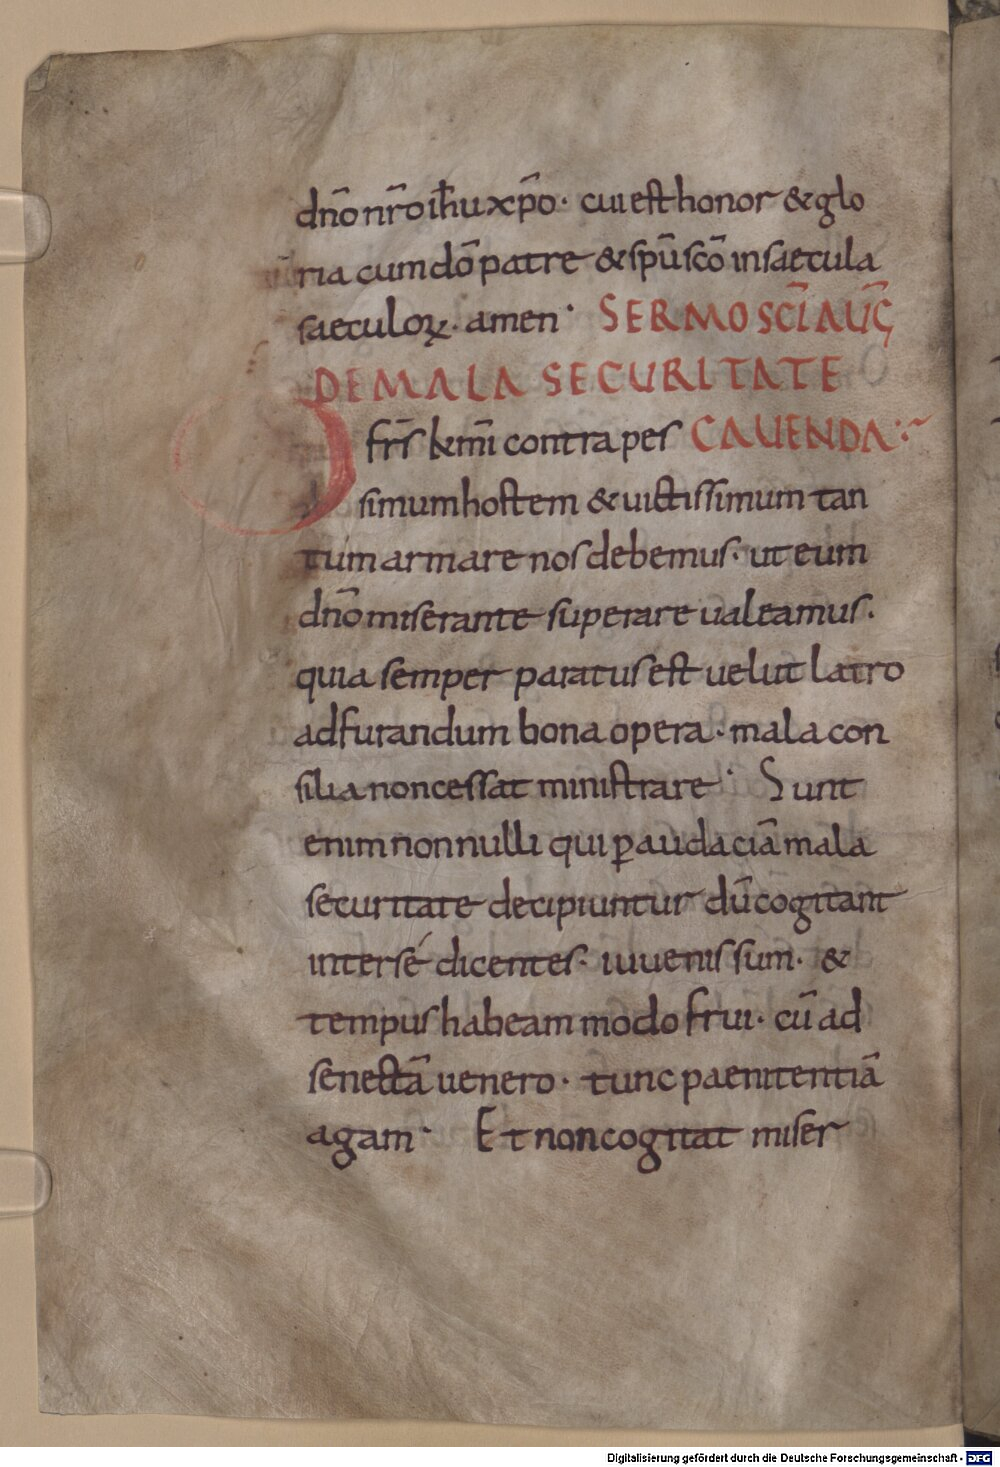 dn̄o nr̄o ih̄u xp̄o · cui est honor & glo
ria cum dō patre & sp̄u sc̄o in saecula
saeculoꝝ · amen · SERMO SC̄I AUḠ
DE MALA SECURITATE
O fr̄s k̄mi contra pes CAUENDA :~
simum hostem & uictissimum tan
tum armare nos debemus · ut eum
dn̄o miserante superare ualeamus ·
quia semper paratus est uelut latro
ad furandum bona opera · mala con
silia non cessat ministrare · Sunt
enim nonnulli qui ꝑ audaciā mala
securitate decipiuntur dū cogitant
inter sé dicentes · iuuenis sum · &
tempus habeam modo frui · cū ad
senectā uenero · tunc paenitentiā
agam · Et non cogitat miser
Digitalisierung gefördert durch die Deutsche Forschungsgemeinschaft - DFG